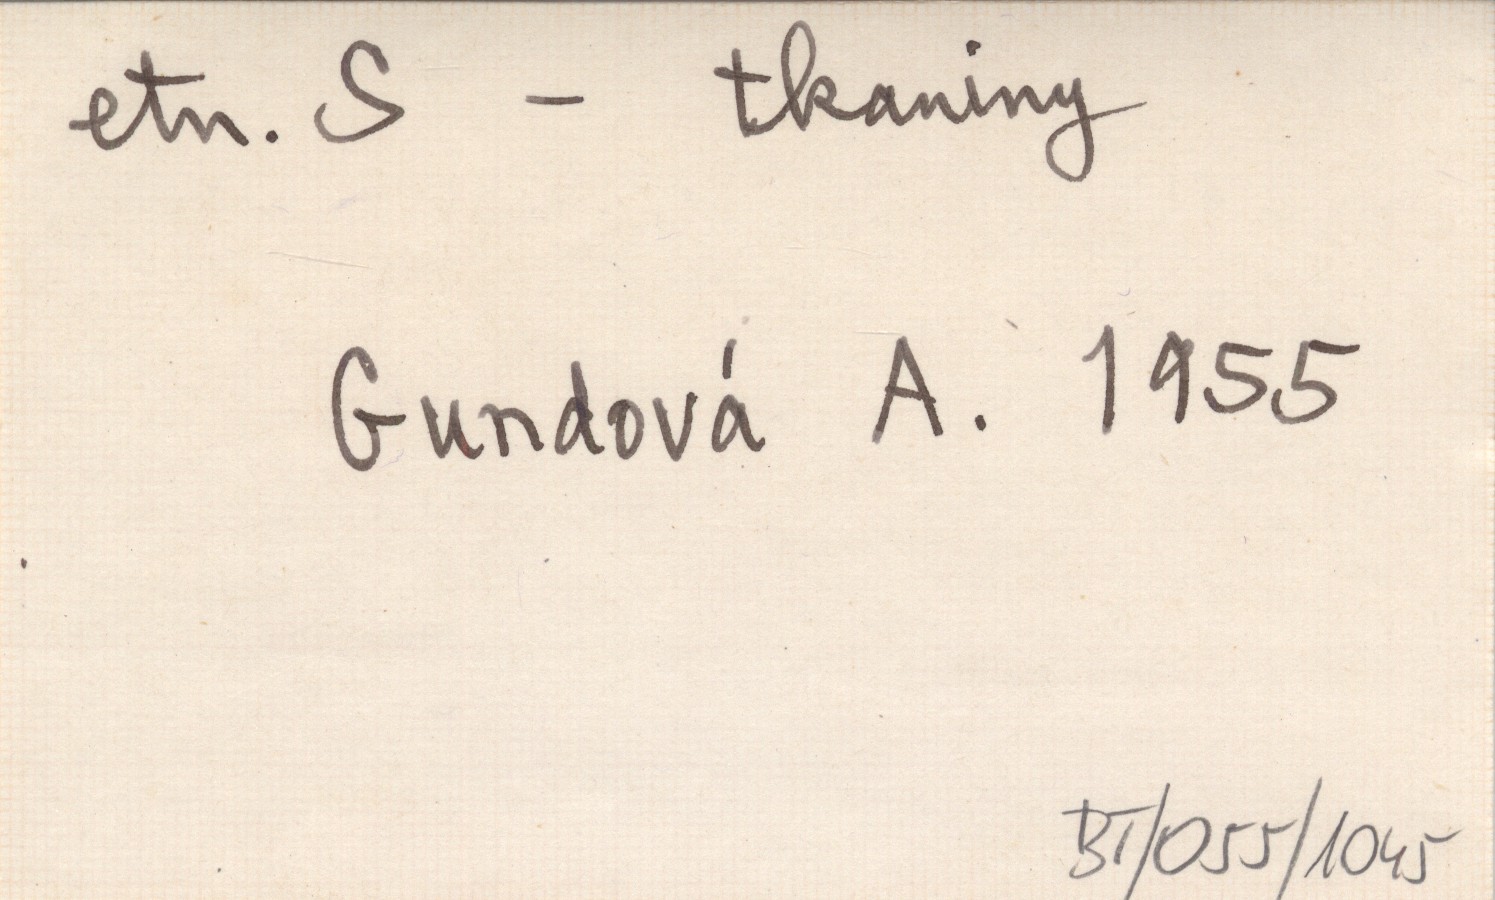 etn. S - tkaniny
Gundová A. 1955
BT/055/1045